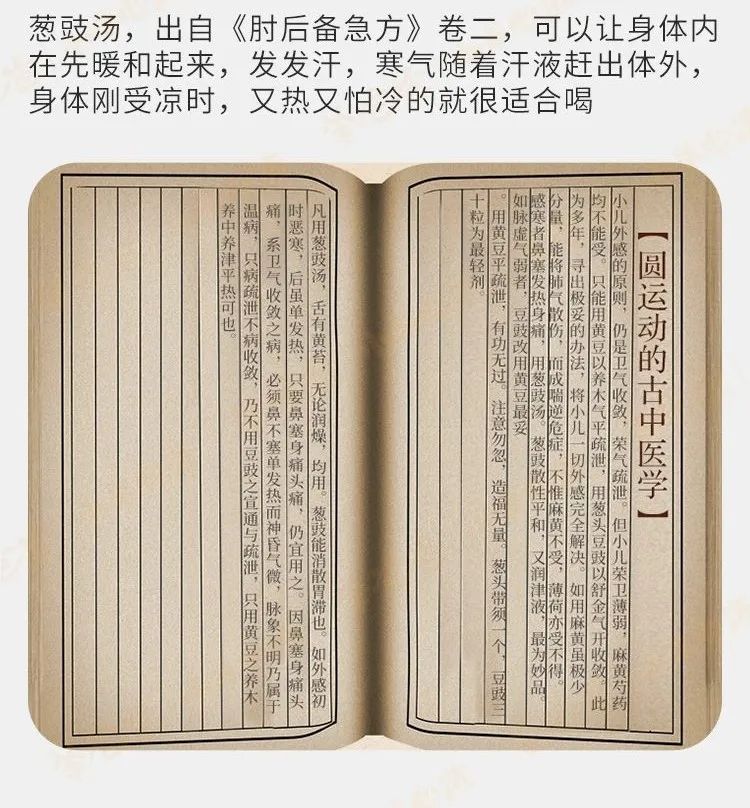 葱豉汤，出自《肘后备急方》卷二，可以让身体内
在先暖和起来，发发汗，寒气随着汗液赶出体外，
身体刚受凉时，又热又怕冷的就很适合喝
【圆运动的古中医学】
小儿外感的原则，仍是卫气收敛，荣气疏泄。但小儿荣卫薄弱，麻黄芍药
均不能受。只能用黄豆以养木气平疏泄，用葱头豆豉以舒金气开收敛。此
为多年，寻出极妥的办法，将小儿一切外感完全解决。如用麻黄虽极少
分量，能将肺气散伤，而成喘逆危症，不惟麻黄不受，薄荷亦受不得。
感寒者鼻塞发热身痛，用葱豉汤。葱豉散性平和，又润津液，最为妙品。
如脉虚气弱者，豆豉改用黄豆最妥
。用黄豆平疏泄，有功无过。注意勿忽，造福无量。葱头带须一个，豆豉三
十粒为最轻剂。
凡用葱豉汤，舌有黄苔，无论润燥，均用。葱豉能消散胃滞也。如外感初
时恶寒，后虽单发热，只要鼻塞身痛头痛，仍宜用之。因鼻塞身痛头
痛，系卫气收敛之病，必须鼻不塞单发热而神昏气微，脉象不明乃属于
温病，只病疏泄不病收敛，乃不用豆豉之宣通与疏泄，只用黄豆之养木
养中养津平热可也。